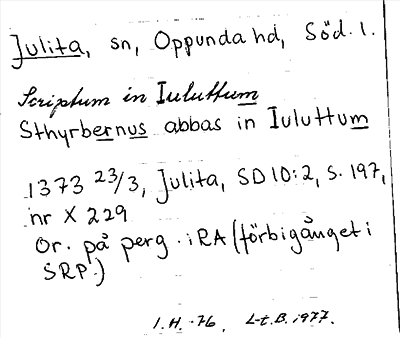 Julita, sn, Oppunda hd, Söd. l.
Scriptum in Iuluttum
Sthyrbernus abbas in Iuluttum
1373 23/3, Julita, SD 10:2, s. 197,
nr X 229
Or. på perg. i RA (förbigånget i
SRP.)
I.H. -76, L-t.B. 1977.